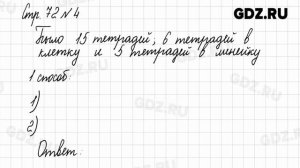 GDZ.RU
Стр. 72 № 4
Было 15 тетрадей, 6 тетрадей в
клетку и 5 тетрадей в линейку
1 способ:
1)
2)
Ответ: